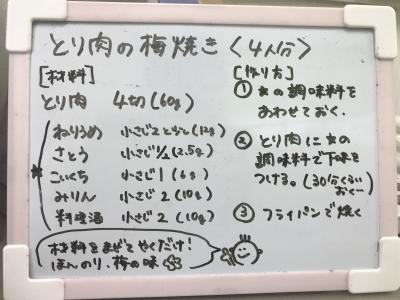 とり肉の梅焼き〈4人分〉
[材料]
とり肉 4切(60g)
★
ねりうめ 小さじ2と1/2(12g)
さとう 小さじ1/2(2.5g)
こいくち 小さじ1(6g)
みりん 小さじ2(10g)
料理酒 小さじ2(10g)
[作り方]
① ★の調味料を
あわせておく。
② とり肉に★の
調味料で下味を
つける。(30分くらい
おく…
③ フライパンで焼く
材料をまぜてやくだけ!
ほんのり、梅の味